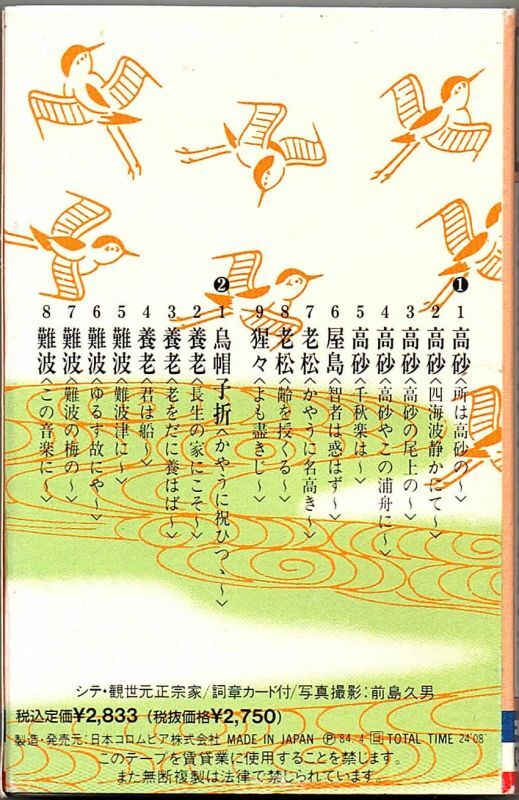 ❶
1 高砂〈所は高砂の〜〉
2 高砂〈四海波静かにて〜〉
3 高砂〈高砂の尾上の〜〉
4 高砂〈高砂やこの浦舟に〜〉
5 高砂〈千秋楽は〜〉
6 屋島〈智者は惑はず〜〉
7 老松〈かやうに名高き〜〉
8 老松〈齢を授くる〜〉
9 猩々〈よも盡きじ〜〉
❷
1 烏帽子折〈かやうに祝ひつゝ〜〉
2 養老〈長生の家にこそ〜〉
3 養老〈老をだに養はば〜〉
4 養老〈君は船〜〉
5 難波〈難波津に〜〉
6 難波〈ゆるす故にや〜〉
7 難波〈難波の梅の〜〉
8 難波〈この音楽に〜〉
シテ・観世元正宗家/詞章カード付/写真撮影：前島久男
税込定価¥2,833（税抜価格¥2,750）
製造・発売元：日本コロムビア株式会社 MADE IN JAPAN Ⓟ84.4 回 TOTAL TIME 24'08
このテープを賃貸業に使用することを禁じます。
また無断複製は法律で禁じられています。